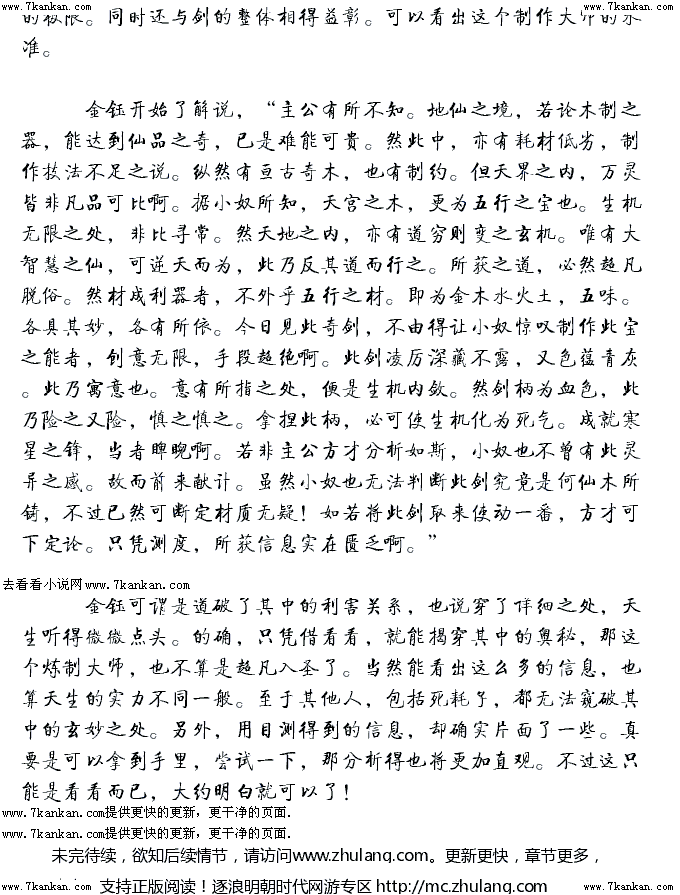 www.7kankan.com www.7kankan.com
的极限。同时还与剑的整体相得益彰。可以看出这个制作大师的水
准。
金钰开始了解说，“主公有所不知。地仙之境，若论木制之
器，能达到仙品之奇，已是难能可贵。然此中，亦有耗材低劣，制
作技法不足之说。纵然有亘古奇木，也有制约。但天界之内，万灵
皆非凡品可比啊。据小奴所知，天宫之木，更为五行之宝也。生机
无限之处，非比寻常。然天地之内，亦有道穷则变之玄机。唯有大
智慧之仙，可逆天而为，此乃反其道而行之。所获之道，必然超凡
脱俗。然材成利器者，不外乎五行之材。即为金木水火土，五味。
各具其妙，各有所依。今日见此奇剑，不由得让小奴惊叹制作此宝
之能者，创意无限，手段超绝啊。此剑凌厉深藏不露，又色蕴青灰
。此乃寓意也。意有所指之处，便是生机内敛。然剑柄为血色，此
乃险之又险，慎之慎之。拿捏此柄，必可使生机化为死气。成就寒
星之锋，当者睥睨啊。若非主公方才分析如斯，小奴也不曾有此灵
异之感。故而前来献计。虽然小奴也无法判断此剑究竟是何仙木所
铸，不过已然可断定材质无疑！如若将此剑取来使动一番，方才可
下定论。只凭测度，所获信息实在匮乏啊。”
去看看小说网www.7kankan.com
金钰可谓是道破了其中的利害关系，也说穿了详细之处，天
生听得微微点头。的确，只凭借看看，就能揭穿其中的奥秘，那这
个炼制大师，也不算是超凡入圣了。当然能看出这么多的信息，也
算天生的实力不同一般。至于其他人，包括死耗子，都无法窥破其
中的玄妙之处。另外，用目测得到的信息，却确实片面了一些。真
要是可以拿到手里，尝试一下，那分析得也将更加直观。不过这只
能是看看而已，大约明白就可以了！
www.7kankan.com提供更快的更新，更干净的页面.
www.7kankan.com提供更快的更新，更干净的页面.
未完待续，欲知后续情节，请访问www.zhulang.com。更新更快，章节更多，
支持正版阅读！逐浪明朝时代网游专区 http://mc.zhulang.com
www.7kankan.com www.7kankan.com